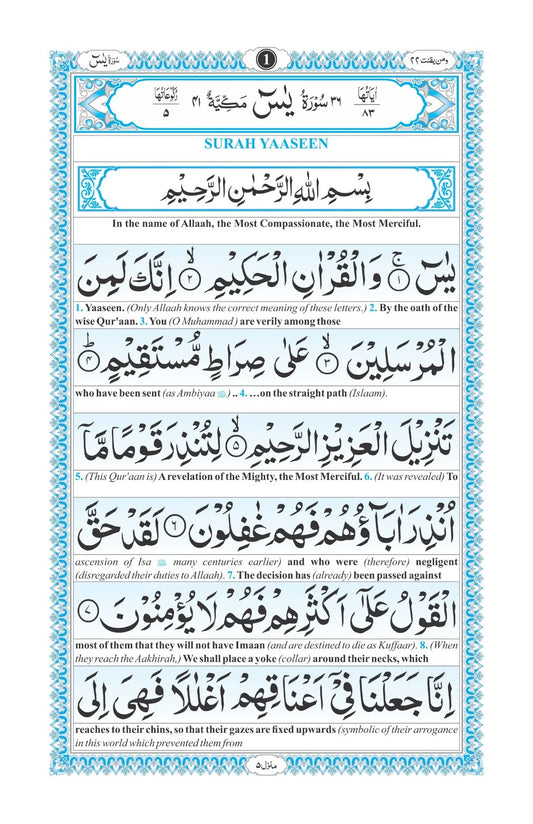 سُوْرَةُ يٰسٓ 1 وَمَن يَّقْنُتْ ٢٢
اٰيَاتُهَا ٨٣ ٣٦ سُوْرَةُ يٰسٓ مَكِّيَّةٌ ٤١ رُكُوْعَاتُهَا ٥
SURAH YAASEEN
بِسْمِ اللّٰهِ الرَّحْمٰنِ الرَّحِيْمِ
In the name of Allaah, the Most Compassionate, the Most Merciful.
يٰسٓ ۚ ﴿١﴾ وَالْقُرْاٰنِ الْحَكِيْمِ ۙ ﴿٢﴾ اِنَّكَ لَمِنَ
1. Yaaseen. (Only Allaah knows the correct meaning of these letters.) 2. By the oath of the
wise Qur'aan. 3. You (O Muhammad ) are verily among those
الْمُرْسَلِيْنَ ۙ ﴿٣﴾ عَلٰى صِرَاطٍ مُّسْتَقِيْمٍ ؕ ﴿٤﴾
who have been sent (as Ambiyaa ) .. 4. …on the straight path (Islaam).
تَنْزِيْلَ الْعَزِيْزِ الرَّحِيْمِ ۙ ﴿٥﴾ لِتُنْذِرَ قَوْمًا مَّاۤ
5. (This Qur'aan is) A revelation of the Mighty, the Most Merciful. 6. (It was revealed) To
اُنْذِرَ اٰبَآؤُهُمْ فَهُمْ غٰفِلُوْنَ ﴿٦﴾ لَقَدْ حَقَّ
ascension of Isa many centuries earlier) and who were (therefore) negligent
(disregarded their duties to Allaah). 7. The decision has (already) been passed against
الْقَوْلُ عَلٰٓى اَكْثَرِهِمْ فَهُمْ لَا يُؤْمِنُوْنَ ﴿٧﴾
most of them that they will not have Imaan (and are destined to die as Kuffaar). 8. (When
they reach the Aakhirah,) We shall place a yoke (collar) around their necks, which
اِنَّا جَعَلْنَا فِيْۤ اَعْنَاقِهِمْ اَغْلٰلًا فَهِىَ اِلَى
reaches to their chins, so that their gazes are fixed upwards (symbolic of their arrogance
in this world which prevented them from
منزل ٥